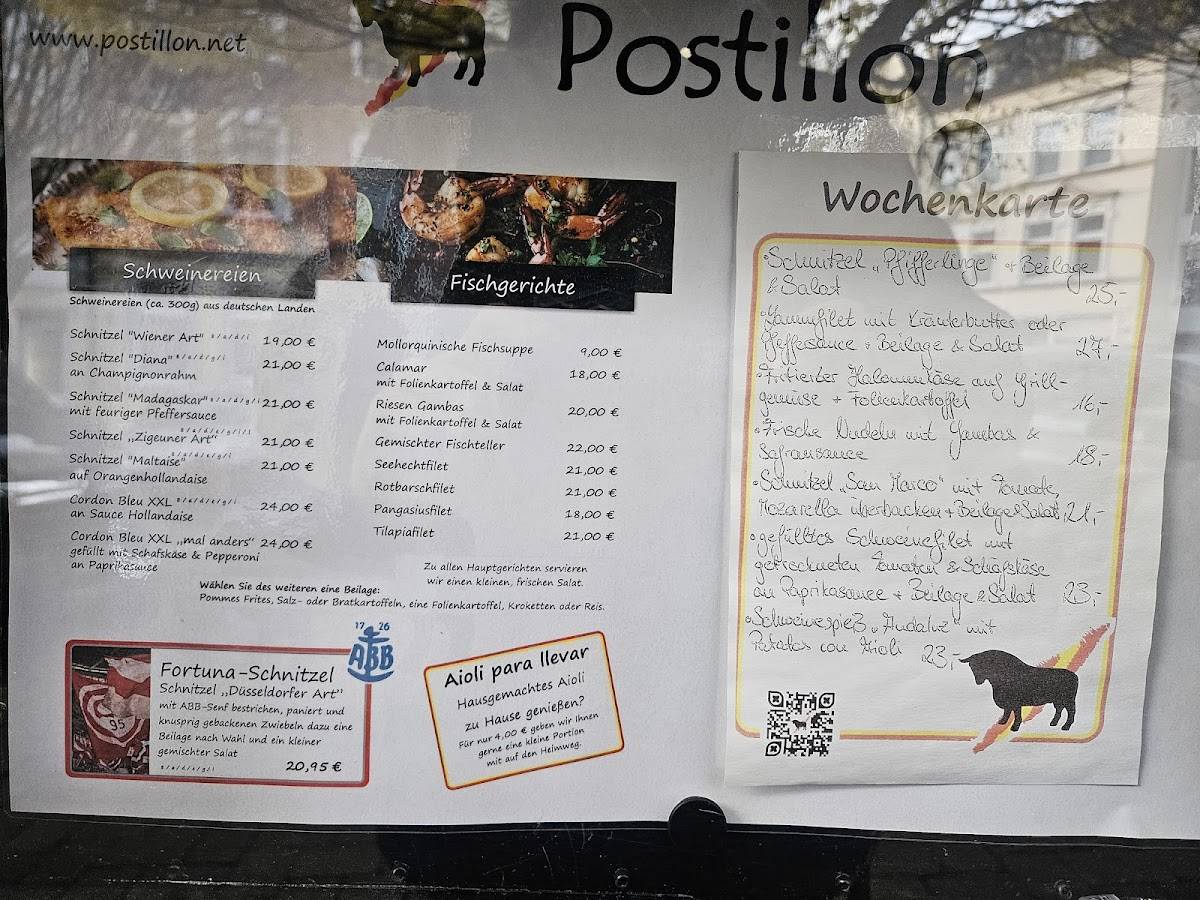 www.postillon.net
Postillon
Schweinereien
Schweinereien (ca. 300g) aus deutschen Landen
Schnitzel "Wiener Art" 19,00 €
Schnitzel "Diana" 21,00 €
an Champignonrahm
Schnitzel "Madagaskar" 21,00 €
mit feuriger Pfeffersauce
Schnitzel „Zigeuner Art" 21,00 €
Schnitzel "Maltaise" 21,00 €
auf Orangenhollandaise
Cordon Bleu XXL 24,00 €
an Sauce Hollandaise
Cordon Bleu XXL „mal anders" 24,00 €
gefüllt mit Schafskäse & Pepperoni
an Paprikasauce
Fischgerichte
Mollorquinische Fischsuppe 9,00 €
Calamar 18,00 €
mit Folienkartoffel & Salat
Riesen Gambas 20,00 €
mit Folienkartoffel & Salat
Gemischter Fischteller 22,00 €
Seehechtfilet 21,00 €
Rotbarschfilet 21,00 €
Pangasiusfilet 18,00 €
Tilapiafilet 21,00 €
Zu allen Hauptgerichten servieren
wir einen kleinen, frischen Salat.
Wählen Sie des weiteren eine Beilage:
Pommes Frites, Salz- oder Bratkartoffeln, eine Folienkartoffel, Kroketten oder Reis.
95
17 26
ABB
Fortuna-Schnitzel
Schnitzel „Düsseldorfer Art"
mit ABB-Senf bestrichen, paniert und
knusprig gebackenen Zwiebeln dazu eine
Beilage nach Wahl und ein kleiner
gemischter Salat
20,95 €
Aioli para llevar
Hausgemachtes Aioli
zu Hause genießen?
Für nur 4,00 € geben wir Ihnen
gerne eine kleine Portion
mit auf den Heimweg.
Wochenkarte
• Schnitzel „Pfifferlinge" + Beilage
& Salat 25,-
• Lammfilet mit Kräuterbutter oder
Pfeffersauce + Beilage & Salat 27,-
• Fritierter Haloumikäse auf Grill-
gemüse + Folienkartoffel 16,-
• Frische Nudeln mit Gambas &
Safransauce 18,-
• Schnitzel „San Marco" mit Tomate,
Mozarella überbacken + Beilage & Salat 21,-
• gefülltes Schweinefilet mit
getrockneten Tomaten & Schafskäse
an Paprikasauce + Beilage & Salat 23,-
• Schweinespieß „Andaluz" mit
Patatas con Aioli 23,-